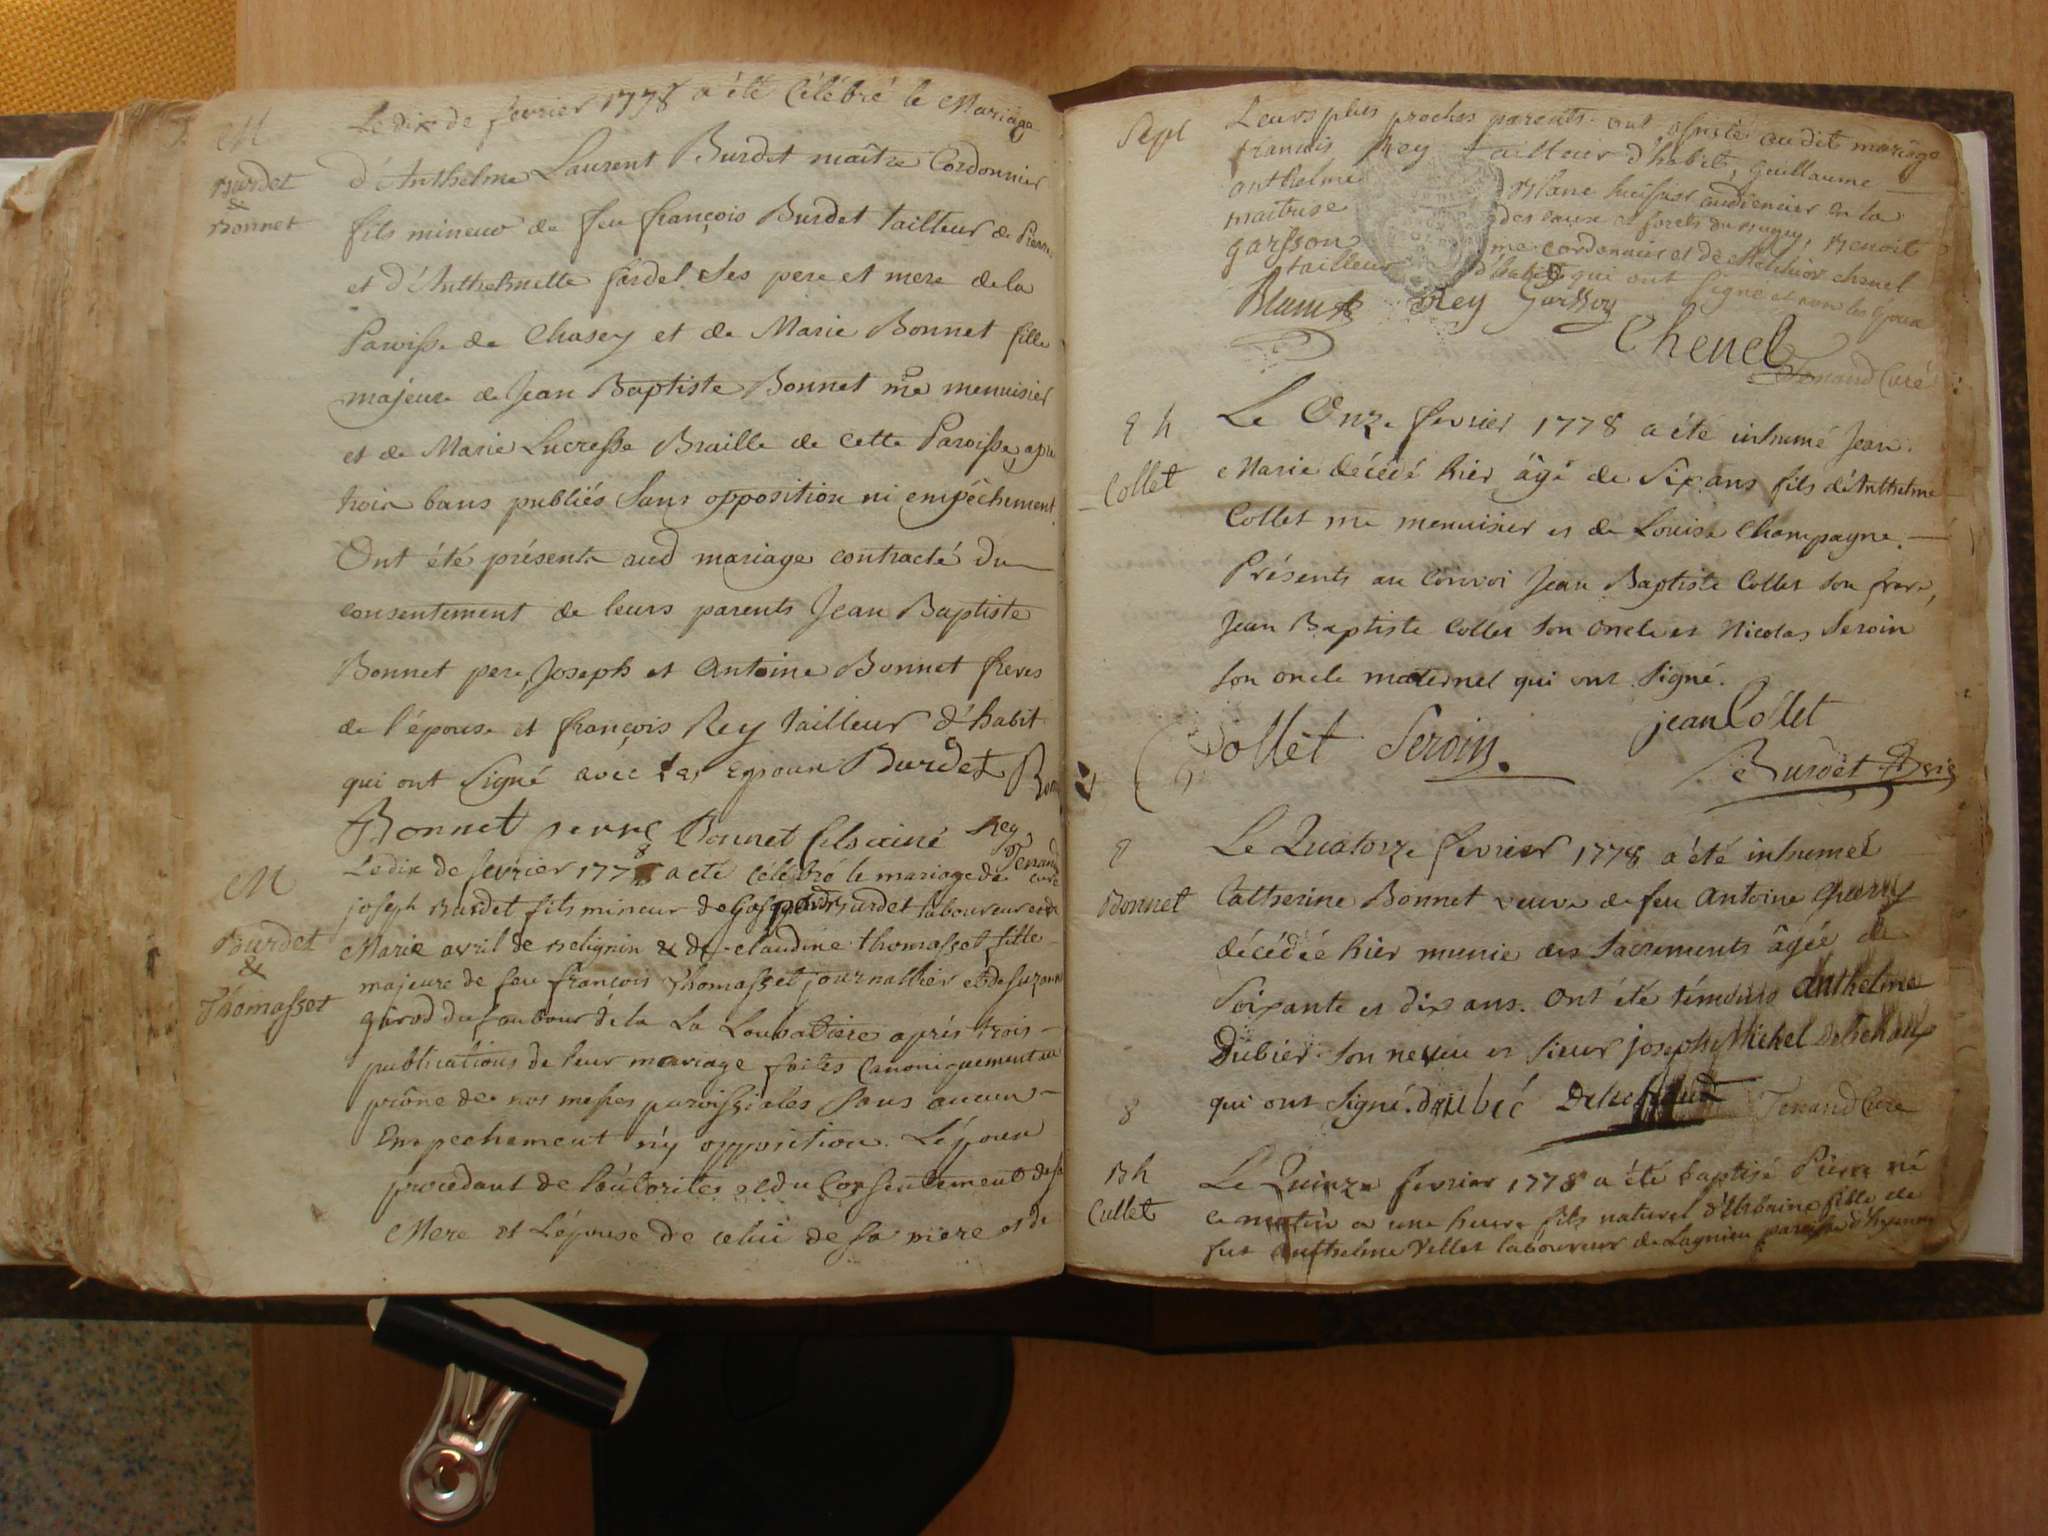 M
Burdet
&
Bonnet
Le dix de fevrier 1778 a été Célébré le Mariage
d'Anthelme Laurent Burdet maître Cordonnier
fils mineur de feu françois Burdet tailleur de Pierre
et d'Anthelmette fardel Ses pere et mere de la
Paroisse de Chasey et de Marie Bonnet fille
majeure de Jean Baptiste Bonnet me menuisier
et de Marie Lucresse Braille de Cette Paroisse, après
trois bans publiés Sans opposition ni empêchement.
Ont été présents aud mariage contracté du
consentement de leurs parents Jean Baptiste
Bonnet pere, Joseph et Antoine Bonnet freres
de l'épouse et françois Rey tailleur d'habit
qui ont Signé avec les epoux Burdet Bon
Bonnet perre Bonnet fils ainé Rey
Tenand curé
M
Burdet
&
Thomasset
Le dix de fevrier 1778 a été Célébré le mariage de
joseph Burdet fils mineur de Burdet laboureur et de
Marie avril de Belignin & de claudine thomasset fille
majeure de feu françois Thomasset journallier et de Suzanne
girod du faubour de la La Loubatiere après trois
publications de leur mariage faites Canoniquement au
prône de nos messes paroissiales Sans aucun
Empechement n'y opposition. L'époux
procedant de l'autorites et du Consentement de sa
Mere et L'épouse de celui de sa mere et de
Sept
Leurs plus proches parents. ont assisté au dit mariage
francois Rey tailleur d'habit, Guillaume
anthelme Blanc huissier audiencier en la
maitrise des eaux et forets du bugey, Benoit
garsson me cordonnier et de Melchior chenel
tailleur d'habit qui ont signé et non les époux
Blanc Rey Garsson
Chenel
Tenand Curé
E h
Collet
Le Onze fevrier 1778 a été inhumé Jean
Marie decédé hier âgé de Six ans fils d'Anthelme
Collet me menuisier et de Louise Champagne.
Présents au Convoi Jean Baptiste Collet Son frere,
Jean Baptiste Collet Son Oncle et Nicolas Seroin
Son oncle maternel qui ont Signé.
Collet Seroin jean Collet
Burdet
E
Bonnet
Le Quatorze fevrier 1778 a été inhumée
Catherine Bonnet veuve de feu Antoine
décédée hier munie des Sacrements âgée de
Soixante et dix ans. Ont été témoins Anthelme
Dubier Son neveu et Sieur joseph Michel
qui ont Signé. Tenand Curé
8
B h
Collet
Le Quinze fevrier 1778 a été baptisé Pierre né
ce matin a une heure fils naturel fille de
fut Anthelme Vellet laboureur de Lagnieu paroisse